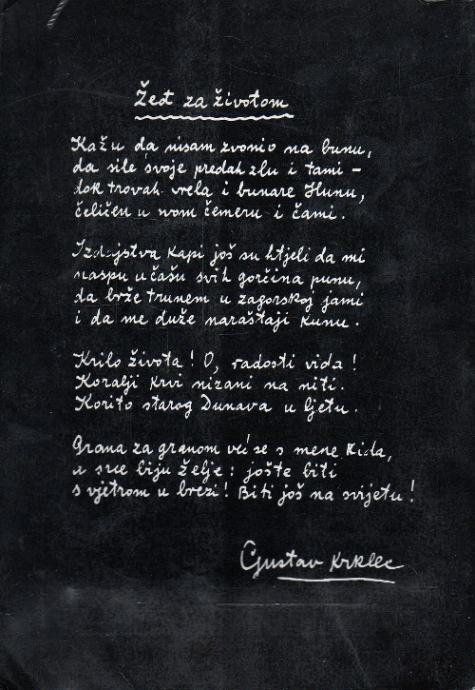 Žeđ za životom
Kažu da nisam zvonio na bunu,
da sile svoje predah zlu i tami –
dok trovah vrela i bunare Hunu,
čeličen u vom čemeru i čami.
Izdajstva kapi još su htjeli da mi
naspu u čašu svih gorčina punu,
da brže trunem u zagorskoj jami
i da me duže naraštaji kunu.
Krilo života! O, radosti vida!
Koralji krvi nizani na niti.
Korito starog Dunava u ljetu.
Grana za granom već se s mene kida,
a srce biju želje: jošte biti
s vjetrom u brezi! Biti još na svijetu!
Gustav Krklec